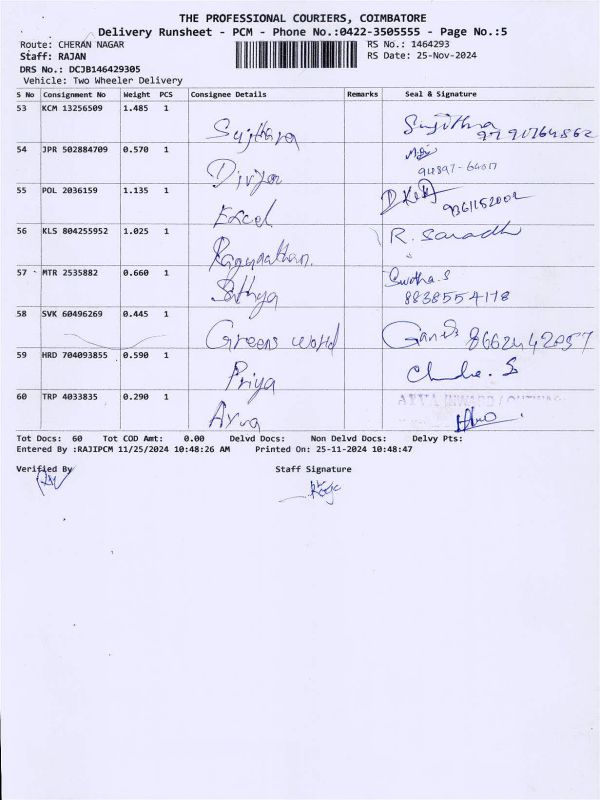 THE PROFESSIONAL COURIERS, COIMBATORE
Delivery Runsheet - PCM - Phone No.:0422-3505555 - Page No.:5
Route: CHERAN NAGAR RS No.: 1464293
Staff: RAJAN RS Date: 25-Nov-2024
DRS No.: DCJB146429305
Vehicle: Two Wheeler Delivery
S No Consignment No Weight PCS Consignee Details Remarks Seal & Signature
53 KCM 13256509 1.485 1
54 JPR 502884709 0.570 1
55 POL 2036159 1.135 1 Excel
56 KLS 804255952 1.025 1 Ragunathan. R. Saradh
57 MTR 2535882 0.660 1 Sathya
58 SVK 60496269 0.445 1 Greens world
59 HRD 704093855 0.590 1 Priya
60 TRP 4033835 0.290 1
Tot Docs: 60 Tot COD Amt: 0.00 Delvd Docs: Non Delvd Docs: Delvy Pts:
Entered By :RAJIPCM 11/25/2024 10:48:26 AM Printed On: 25-11-2024 10:48:47
Verified By Staff Signature